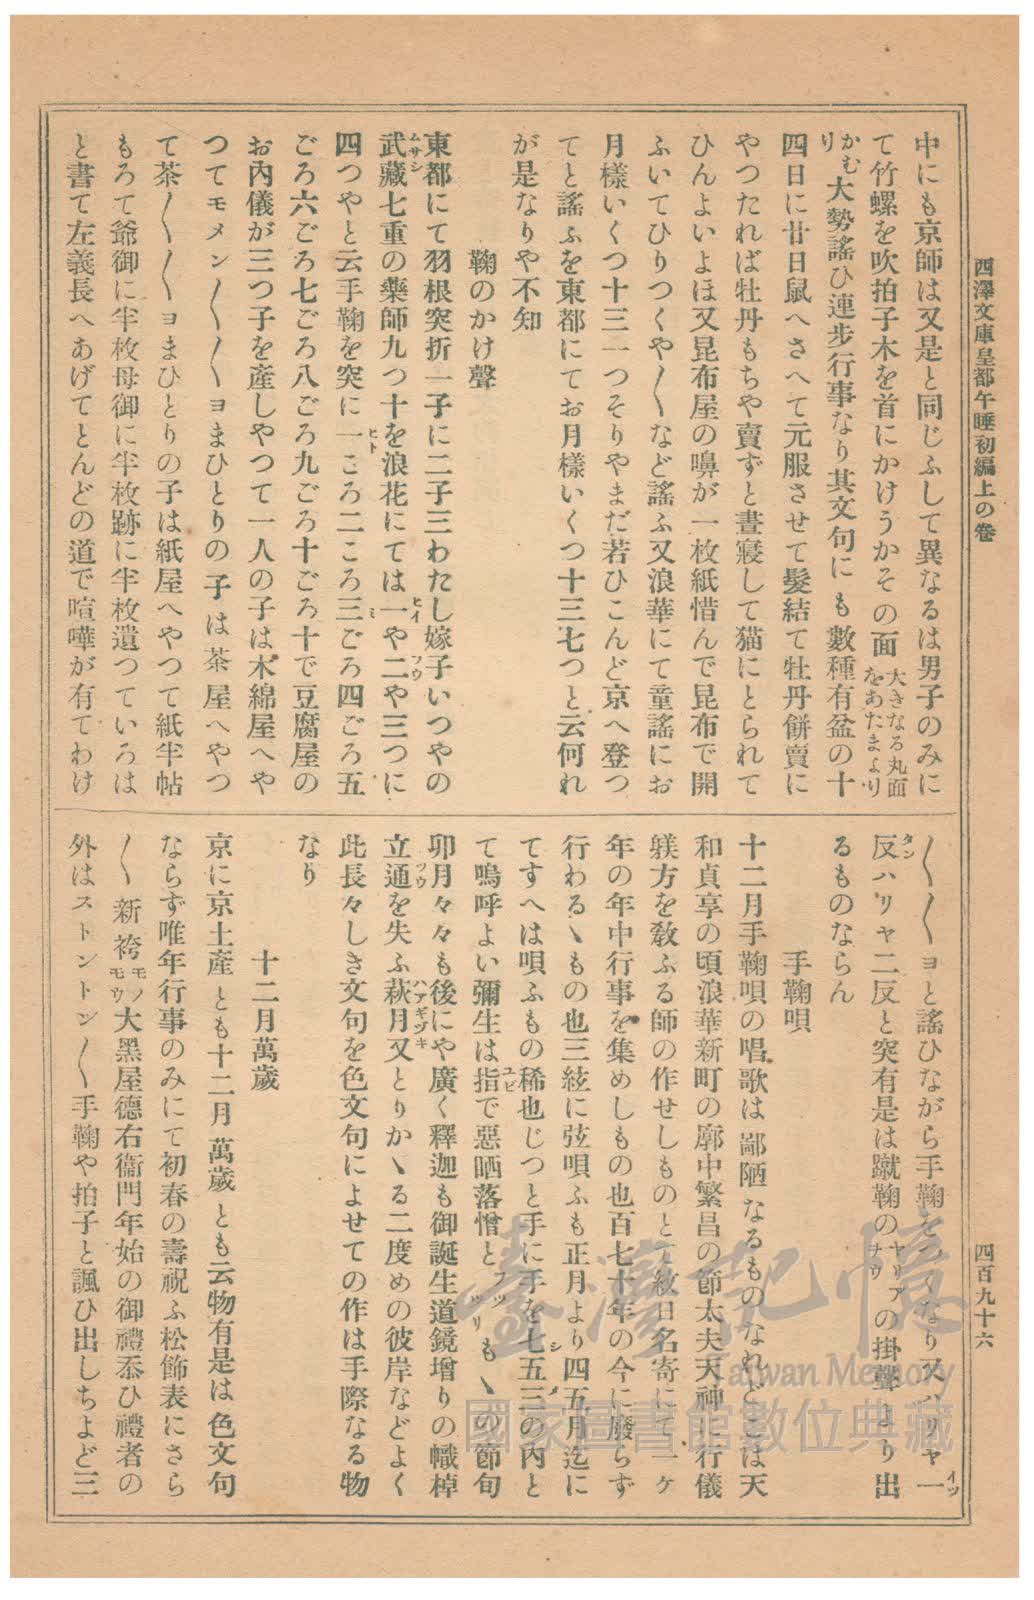 四澤文庫皇都午睡初編上の卷
四百九十六
中にも京師は又是と同じふして異なるは男子のみに
て竹螺を吹拍子木を首にかけうかその面大きなる丸面をあたまより
かむり大勢謠ひ連步行事なり其文句にも數種有盆の十
四日に廿日鼠へさへて元服させて髮結て牡丹餅賣に
やつたれば牡丹もちや賣ずと晝寢して猫にとられて
ひんよいよほ又昆布屋の嚊が一枚紙惜んで昆布で開
ふいてひりつくや〳〵など謠ふ又浪華にて童謠にお
月樣いくつ十三一つそりやまだ若ひこんど京へ登つ
てと謠ふを東都にてお月樣いくつ十三七つと云何れ
が是なりや不知
鞠のかけ聲
東都にて羽根突折一子に二子三わたし嫁子いつやの
武藏ムサシ七重の藥師九つ十を浪花にては一ヒイや二フウや三つに
四つやと云手鞠を突に一ヒトころ二ころ三ミごろ四ごろ五
ごろ六ごろ七ごろ八ごろ九ごろ十ごろ十で豆腐屋の
お內儀が三つ子を產しやつて一人の子は木綿屋へや
つてモメン〳〵〳〵ヨまひとりの子は茶屋へやつ
て茶〳〵〳〵ヨまひとりの子は紙屋へやつて紙半帖
もろて爺御に半枚母御に半枚跡に半枚遺つていろは
と書て左義長へあげてとんどの道で喧嘩が有てわけ
〳〵〳〵ヨと謠ひながら手鞠をつくなり又ハリヤ一イツ
反タンハリヤ二反と突有是は蹴鞠のヤリアナウの掛聲より出
るものならん
手鞠唄
十二月手鞠唄の唱歌は鄙陋なるものなれどこは天
和貞享の頃浪華新町の廓中繁昌の節太夫天神に行儀
躾方を敎ふる師の作せしものとて紋日名寄にて一ヶ
年の年中行事を集めしもの也百七十年の今に廢らず
行わるゝもの也三絃に弦唄ふも正月より四五月迄に
てすへは唄ふもの稀也じつと手に手を七五三シメの內と
て嗚呼よい彌生は指ユビで惡晒落憎とフツツリもゝの節句
卯月々々も後にや廣く釋迦も御誕生道鏡增りの幟棹
立通ツウを失ふ萩月ハアギヅキ又とりかゝる二度めの彼岸などよく
此長々しき文句を色文句によせての作は手際なる物
なり
十二月萬歲
京に京土產とも十二月萬歲とも云物有是は色文句
ならず唯年行事のみにて初春の壽祝ふ松飾表にさら
〳〵新袴モノモウ大黑屋德右衞門年始の御禮忝ひ禮者の
外はストントン〳〵手鞠や拍子と諷ひ出しちよど三
臺灣記憶
Taiwan Memory
國家圖書館數位典藏